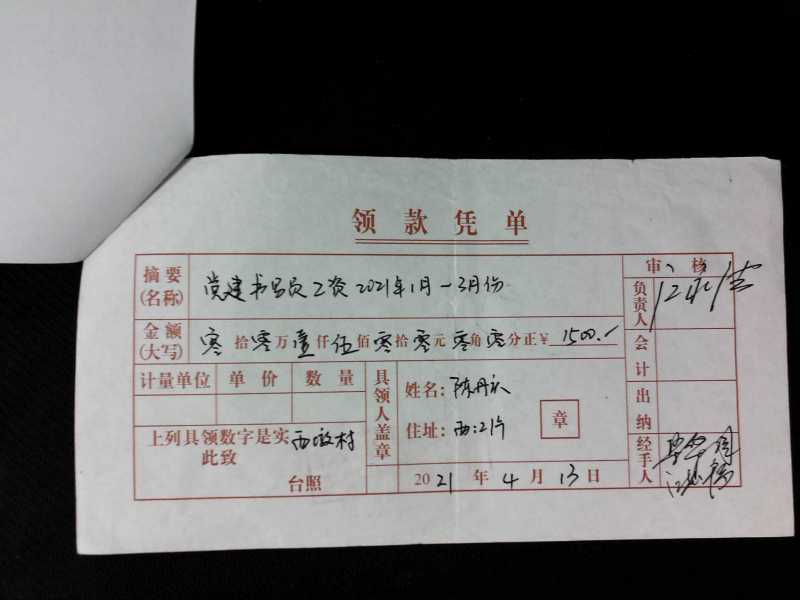 领款凭单
审 核
摘要(名称) 党建书记员工资2021年1月-3月份
负责人
金额(大写) 零拾零万壹仟伍佰零拾零元零角零分正¥1500.-
会计
计量单位 单价 数量
具领人盖章
姓名:陈丹
住址:西:2片
章
出纳
上列具领数字是实
此致
西 村
台照
2021年4月13日
经手人